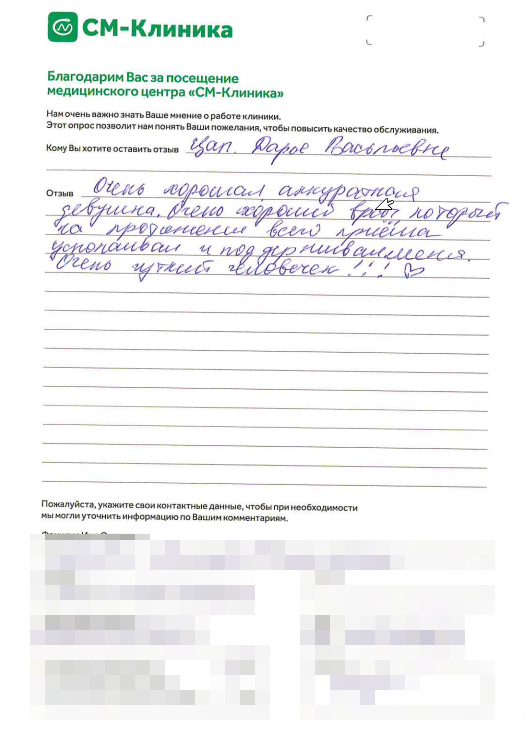 СМ-Клиника
Благодарим Вас за посещение
медицинского центра «СМ-Клиника»
Нам очень важно знать Ваше мнение о работе клиники.
Этот опрос позволит нам понять Ваши пожелания, чтобы повысить качество обслуживания.
Кому Вы хотите оставить отзыв Цап. Дарье Васильевне
Отзыв Очень хорошая аккуратная
девушка. Очень хороший врач который
на протяжении всего приёма
успокаивал и поддерживал меня.
Очень чуткий человечек!!!
Пожалуйста, укажите свои контактные данные, чтобы при необходимости
мы могли уточнить информацию по Вашим комментариям.